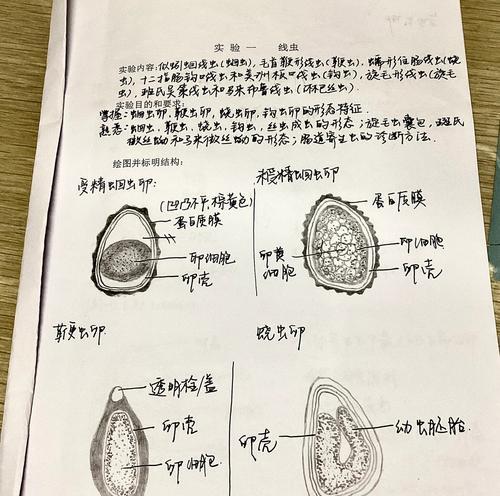 实验一 线虫
实验内容: 似蚓蛔线虫(蛔虫), 毛首鞭形线虫(鞭虫), 蠕形住肠线虫(蛲
虫), 十二指肠钩口线虫和美洲板口线虫(钩虫), 旋毛形线虫(旋毛
虫), 班氏吴策线虫和马来布鲁线虫(丝虫).
实验目的和要求:
掌握: 蛔虫卵, 鞭虫卵, 蛲虫卵, 钩虫卵的形态特征.
熟悉: 蛔虫, 鞭虫, 蛲虫, 钩虫, 丝虫成虫的形态; 旋毛虫囊包, 班氏
微丝蚴和马来微丝蚴的形态; 肠道寄生虫的诊断方法.
绘图并标明结构:
受精蛔虫卵:
(凹凸不平, 棕黄色)
蛋白质膜
卵细胞
卵壳
未受精蛔虫卵
蛋白质膜
卵黄
细胞
卵细胞
卵壳
鞭虫卵
透明栓/盖
卵壳
卵细胞
蛲虫卵
卵壳
幼虫胚胎